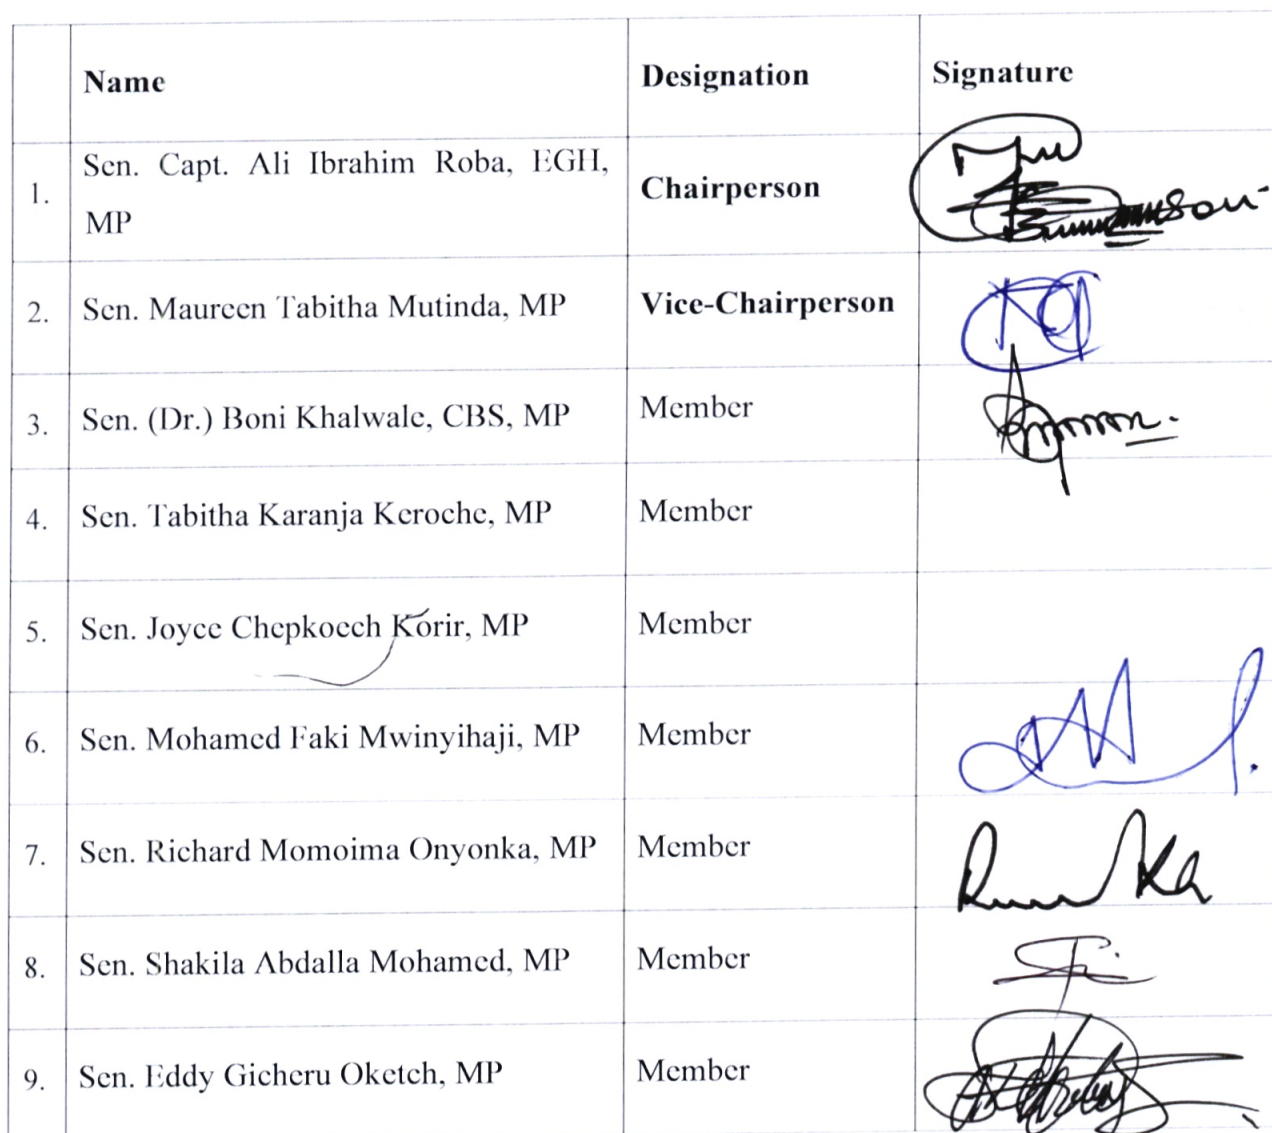 Name Designation Signature
1. Sen. Capt. Ali Ibrahim Roba, EGH, Chairperson
MP
2. Sen. Maureen Tabitha Mutinda, MP Vice-Chairperson
3. Sen. (Dr.) Boni Khalwale, CBS, MP Member
4. Sen. Tabitha Karanja Keroche, MP Member
5. Sen. Joyce Chepkoech Korir, MP Member
6. Sen. Mohamed Faki Mwinyihaji, MP Member
7. Sen. Richard Momoima Onyonka, MP Member
8. Sen. Shakila Abdalla Mohamed, MP Member
9. Sen. Eddy Gicheru Oketch, MP Member